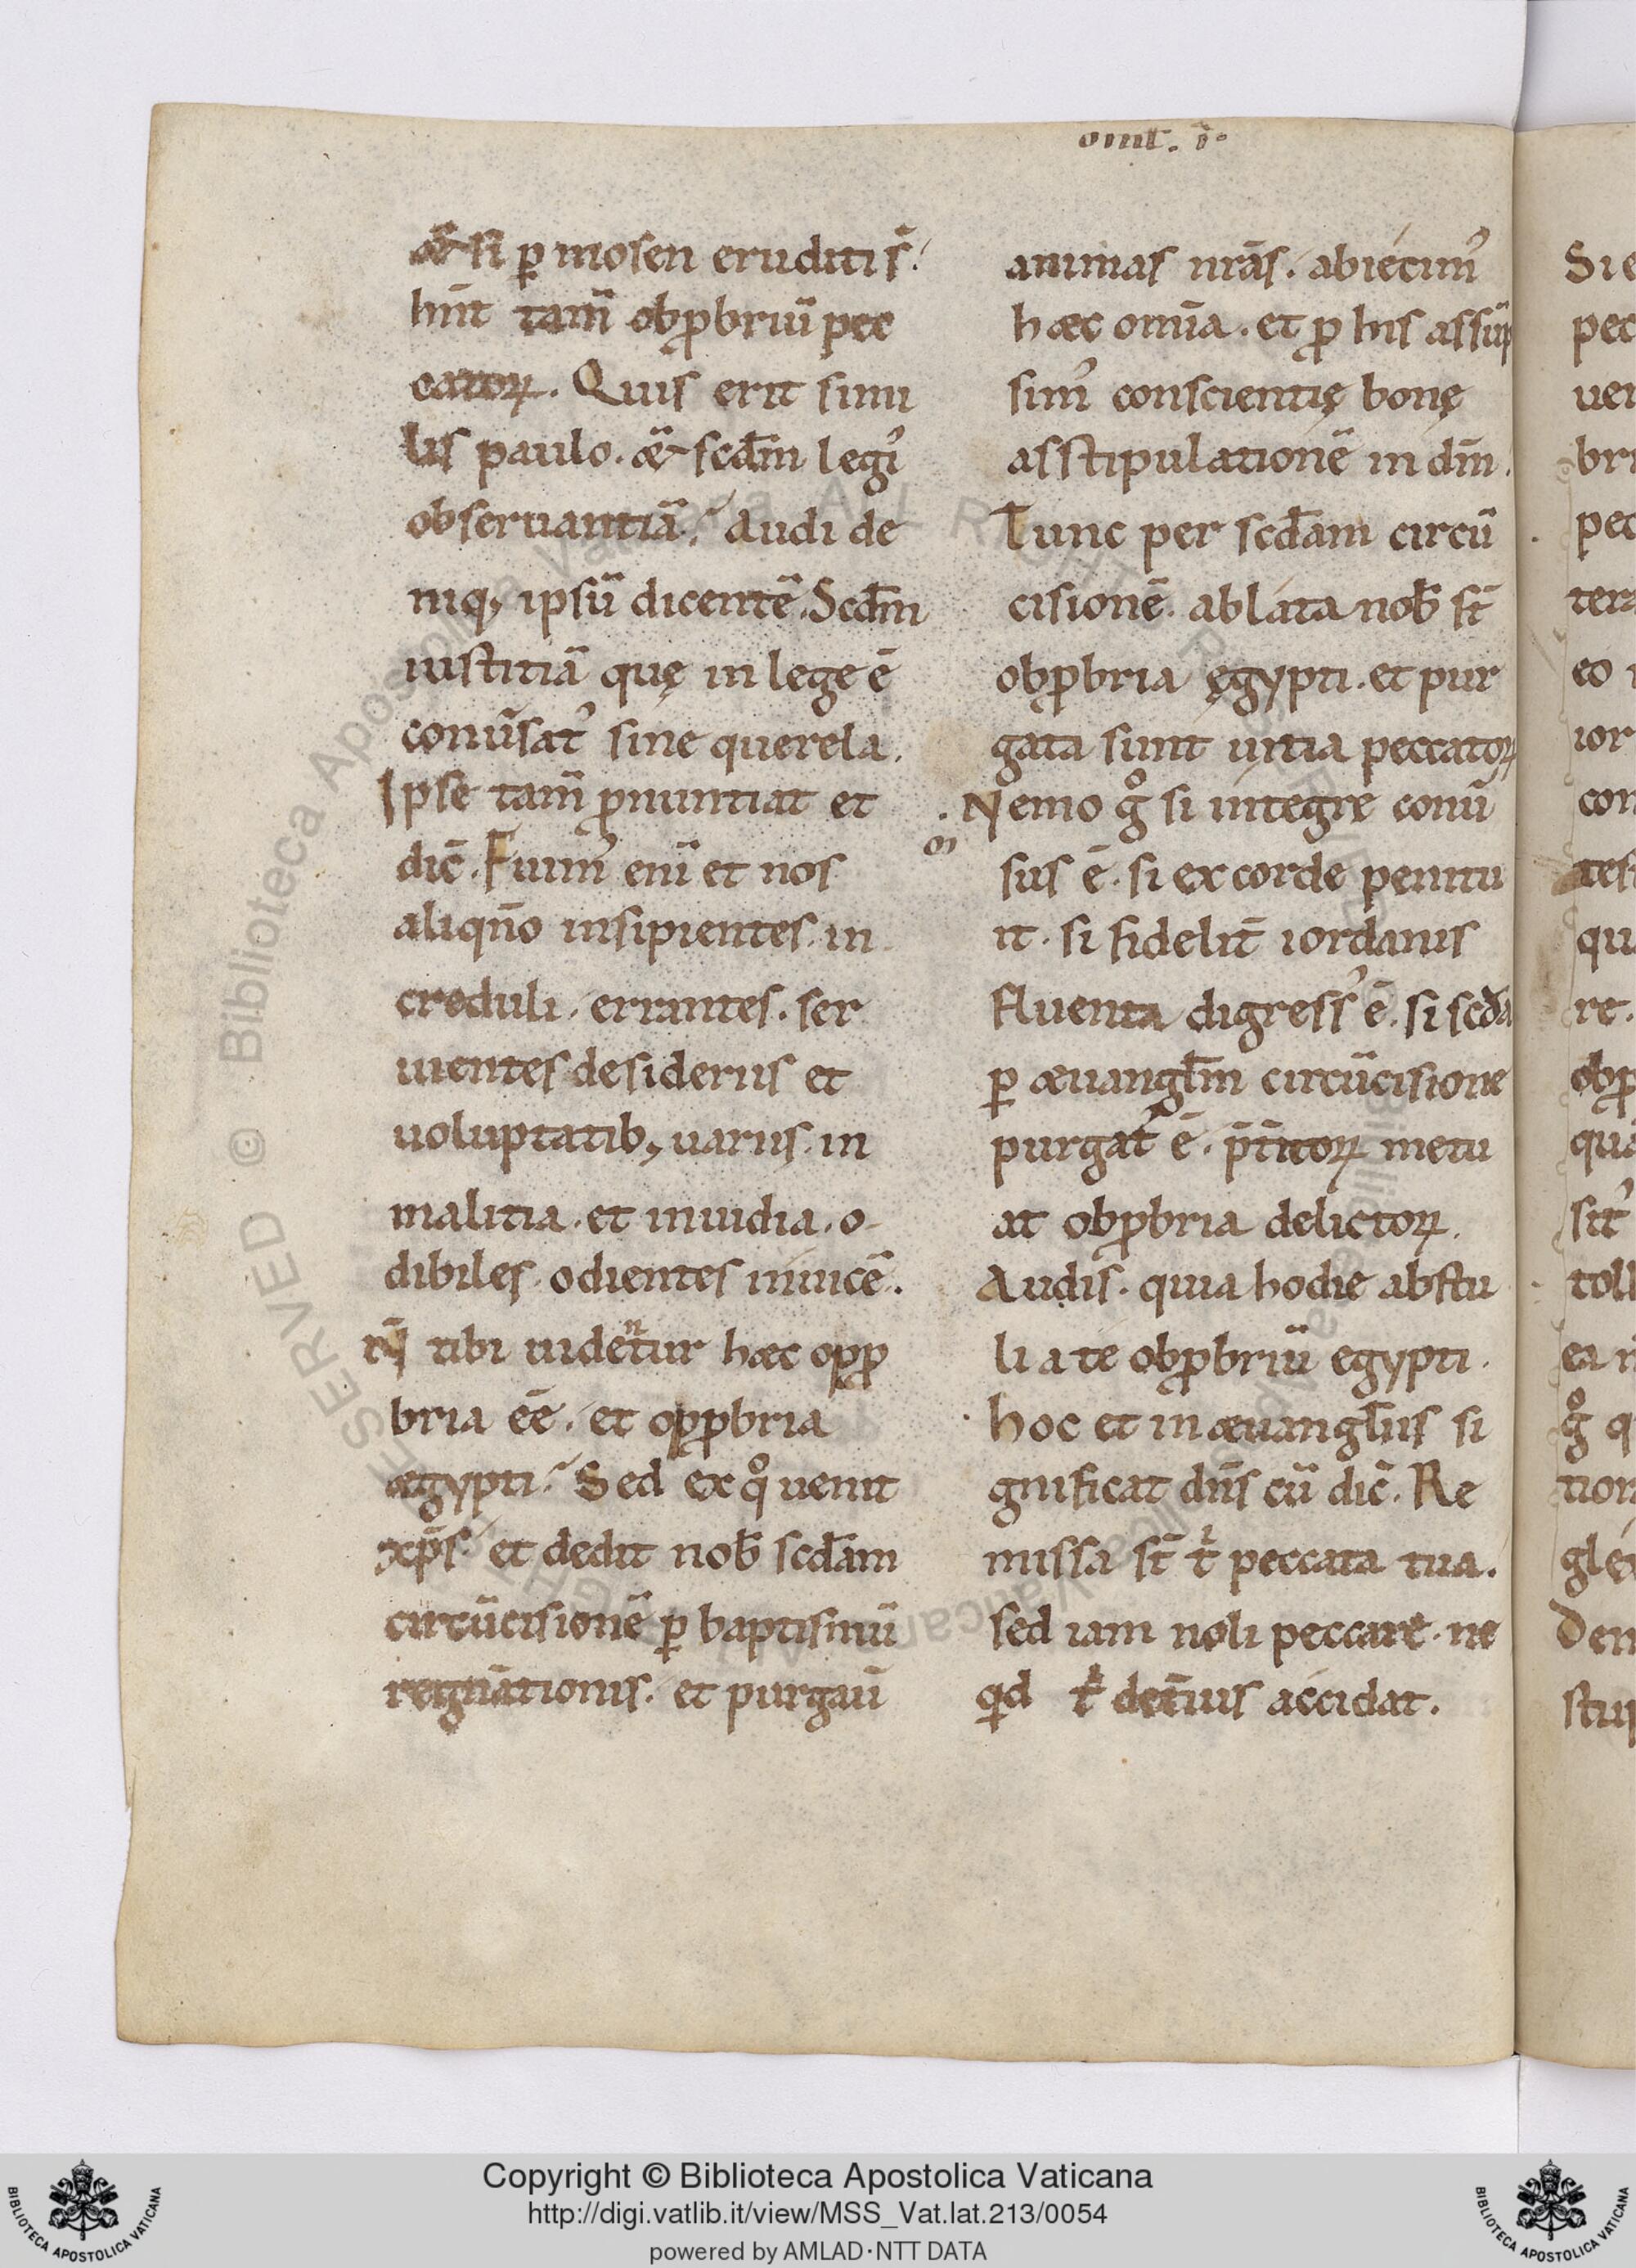 omt. i.
&̃ si ꝑ mosen eruditi s̃.
hn̄t tam̄ obꝓbriū pec
catoꝝ. Quis erit simi
lis paulo. &̃ scd̄m legꝰ
obseruantiā. Audi de
niqꝫ ipsū dicentē. Scd̄m
iustitiā quę in lege ē
conūsatꝰ sine querela.
Ipse tam̄ ꝓnuntiat et
dic̄. Fuimꝰ eni et nos
aliqn̄o insipientes. in
creduli. errantes. ser
uientes desideriis et
uoluptatibꝫ uariis. in
malitia. et inuidia. o
dibiles. odientes inuicē.
Nͫ tibi uidentur hæc opꝓ
bria ēē. et opꝓbria
ægypti. Sed ex qͦ uenit
xp̄s. et dedit nob̄ scd̄am
circūcisionē ꝑ baptismū
regn̄ationis. et purgaū
animas nr̄as. abiecimꝰ
hæc omīa. et ꝓ his assūp
simꝰ conscientię bonę
asstipulationē in dm̄.
Tunc per scd̄am circū
cisionē. ablata nob̄ st̄
obꝓbria ęgypti. et pur
gata sunt uitia peccatoꝝ
Nemo gͦ si integre conū
sus ē. si ex corde penitu
it. si fidelit̄ iordanis
fluenta digressꝰ ē. si scd̄a
ꝑ æuangl̄m circūcisione
purgatꝰ ē. p̄t̄itoꝝ metu
at obꝓbria delictoꝝ.
Audis. quia hodie abstu
li a te obꝓbriū egypti.
hoc et in æuangl̄iis si
gnificat dn̄s cū dic̄. Re
missa st̄ tⁱ peccata tua.
sed iam noli peccare. ne
qͥd tⁱ det̄ius accidat.
Sie
pec
uer
bri
pec
tera
eo
ior
con
tesi
qu
re.
obꝓ
qua
sitꝰ
toll
ea n
gͦ q
tion
gle
Den
stui
© Biblioteca Apostolica Vaticana
ALL RIGHTS RESERVED
Copyright © Biblioteca Apostolica Vaticana
http://digi.vatlib.it/view/MSS_Vat.lat.213/0054
powered by AMLAD·NTT DATA
BIBLIOTECA APOSTOLICA VATICANA
BIBLIOTECA APOSTOLICA VATICANA